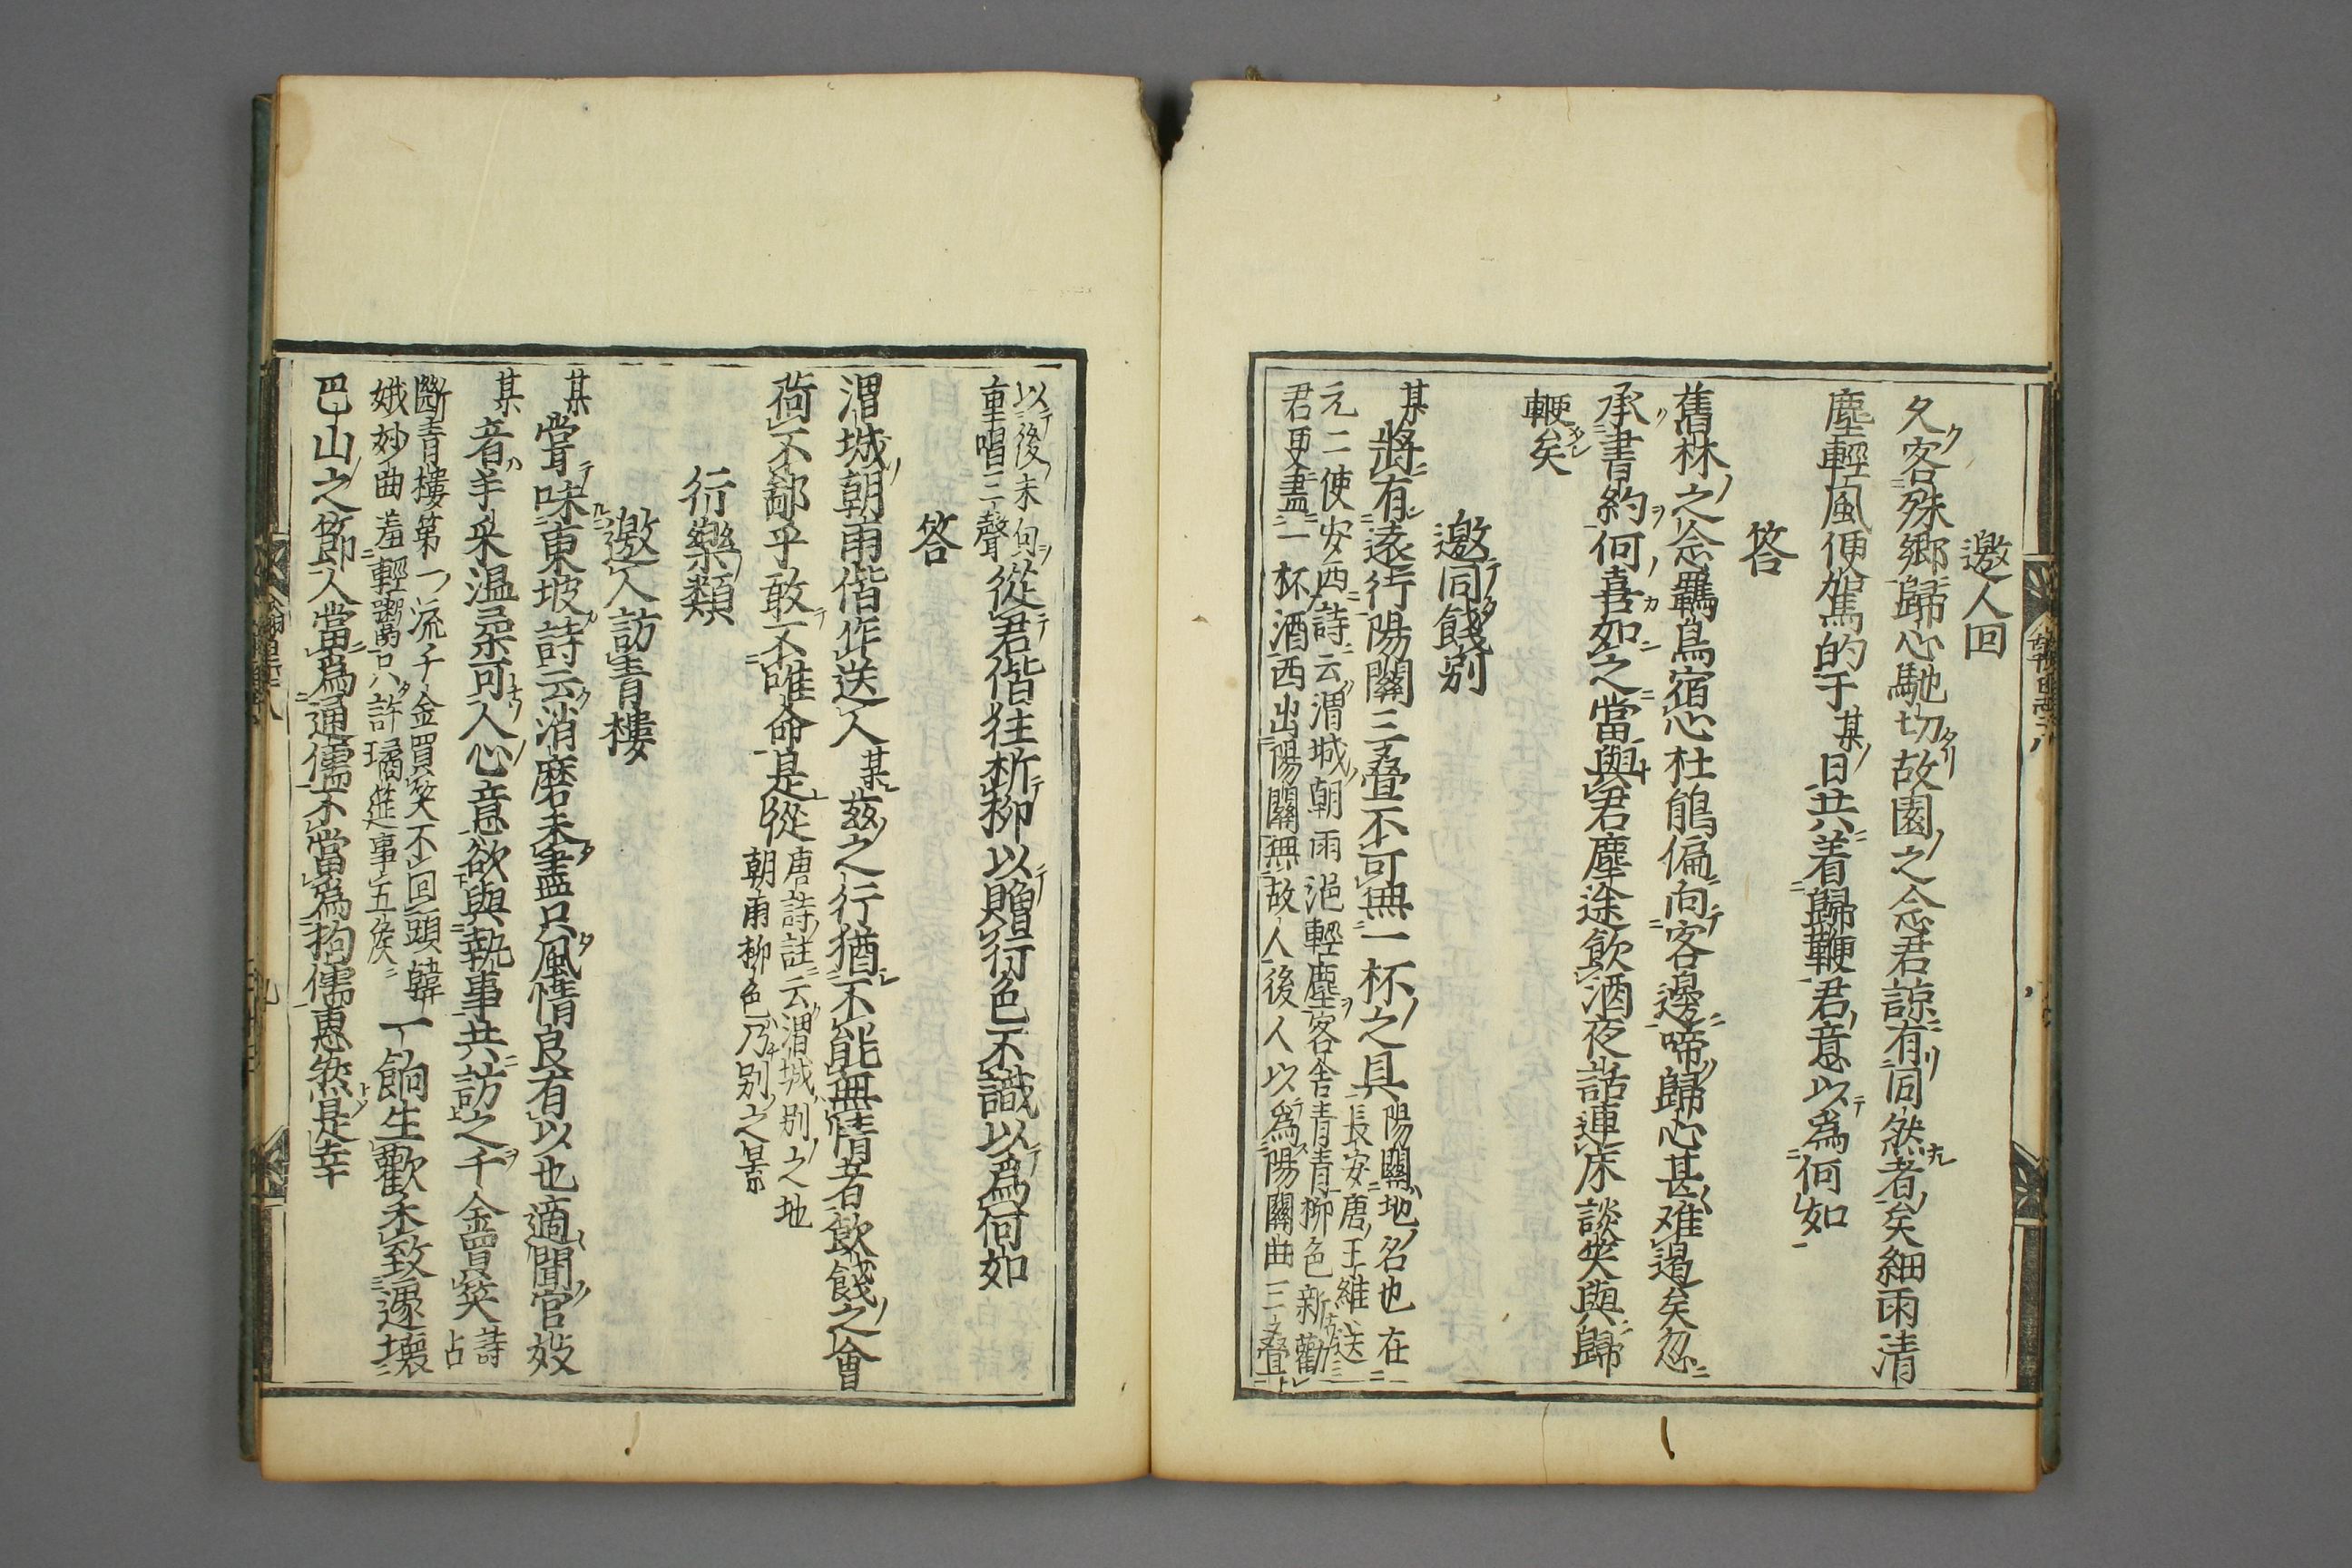 邀人回
久客殊郷歸心馳切故園之念君諒有同然者矣細雨清
塵輕風便駕的于某日共着歸鞭君意以爲何如
答
舊林之念羈鳥宿心杜鵑偏向客邊啼歸心甚难遏矣忽
承書約何喜如之當與君塵途飲酒夜話連床談笑與歸
鞭矣
邀同餞别
某將有遠行陽關三疊不可無一杯之具陽關地名也在
長安唐王維送
元二使安西詩云渭城朝雨浥輕塵客舎青青柳色新勸
君更盡一杯酒西出陽關無故人後人以爲陽關曲三疊
以後末句
重唱三聲從君偕往折柳以贈行色不識以爲何如
答
渭城朝雨偕作送人某兹之行猶不能無情者飲餞之會
荷不鄙乎敢不唯命是從唐詩註云渭城别之地
朝雨柳色乃别之景
行樂類
邀人訪青樓
某嘗味東坡詩云消磨未盡只風情良有以也適聞官妓
某音丰采温柔可人心意欲與執事共訪之千金買笑詩
占
斷青樓第一流千金買笑不回頭韓
娥妙曲羞輕鬻只許璚莚事五侯一餉生歡禾致遽壞
巴山之節人當爲通儒不當爲拘儒惠然是幸